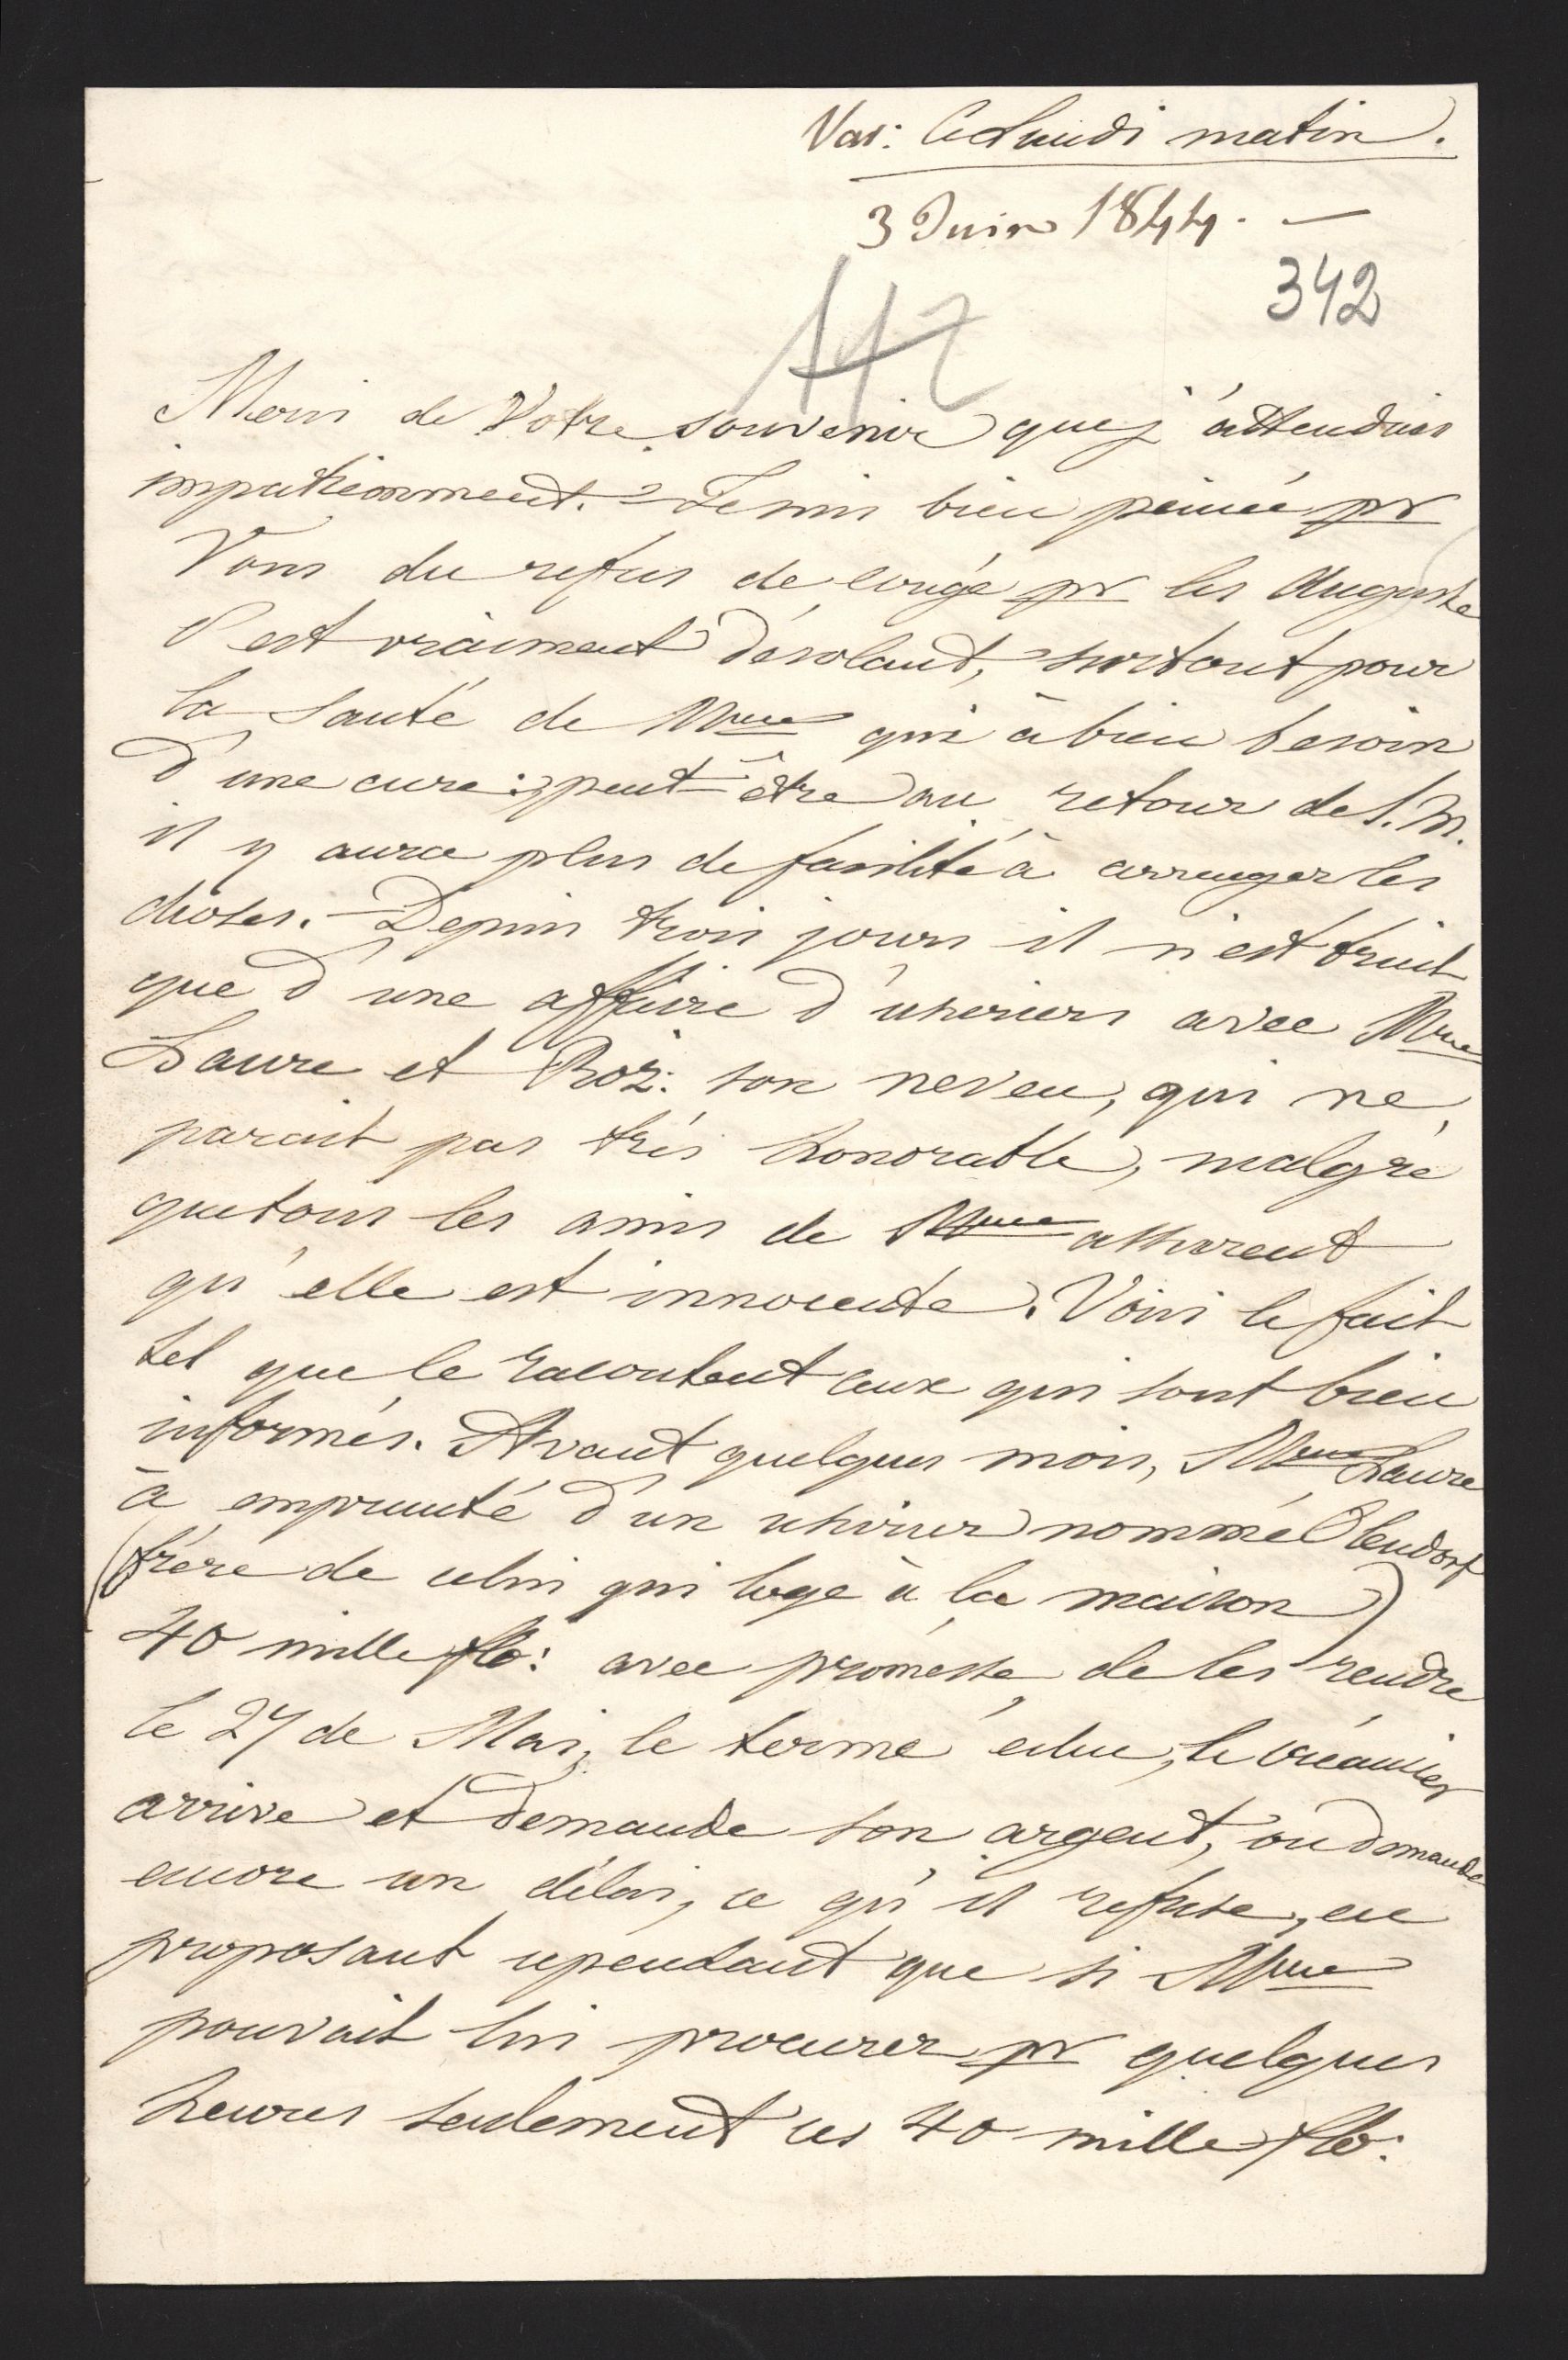 Var: Ce Lundi matin.
3 Juin 1844. —
342
112
Merci de Votre souvenir que j'attendais
impatiemment. – Je suis bien peinée pr
Vous du refus de congé pr les Auguste
C'est vraiment désolant, surtout pour
la santé de Mme qui à bien besoin
d'une cure: peut-être au retour de S. M.
il y aura plus de facilité à arranger les
choses. – Depuis trois jours il n'est bruit
que d'une affaire d'usuriers avec Mme
Laure et Roz: son neveu, qui ne
parait pas très honorable, malgré
que tous les amis de Mme assurent
qu'elle est innocente. Voici le fait
tel que le racontent ceux qui sont bien
informés. Avant quelques mois, Mme Laure
à emprunté d'un usurier nommé Olendorf
(frère de celui qui loge à la maison)
40 mille flo: avec promesse de les rendre
le 27 de Mai, le terme échu, le créancier
arrive et demande son argent, on demande
encore un délai, ce qu'il refuse, en
proposant cependant que si Mme
pouvait lui procurer pr quelques
heures seulement ces 40 mille flo: